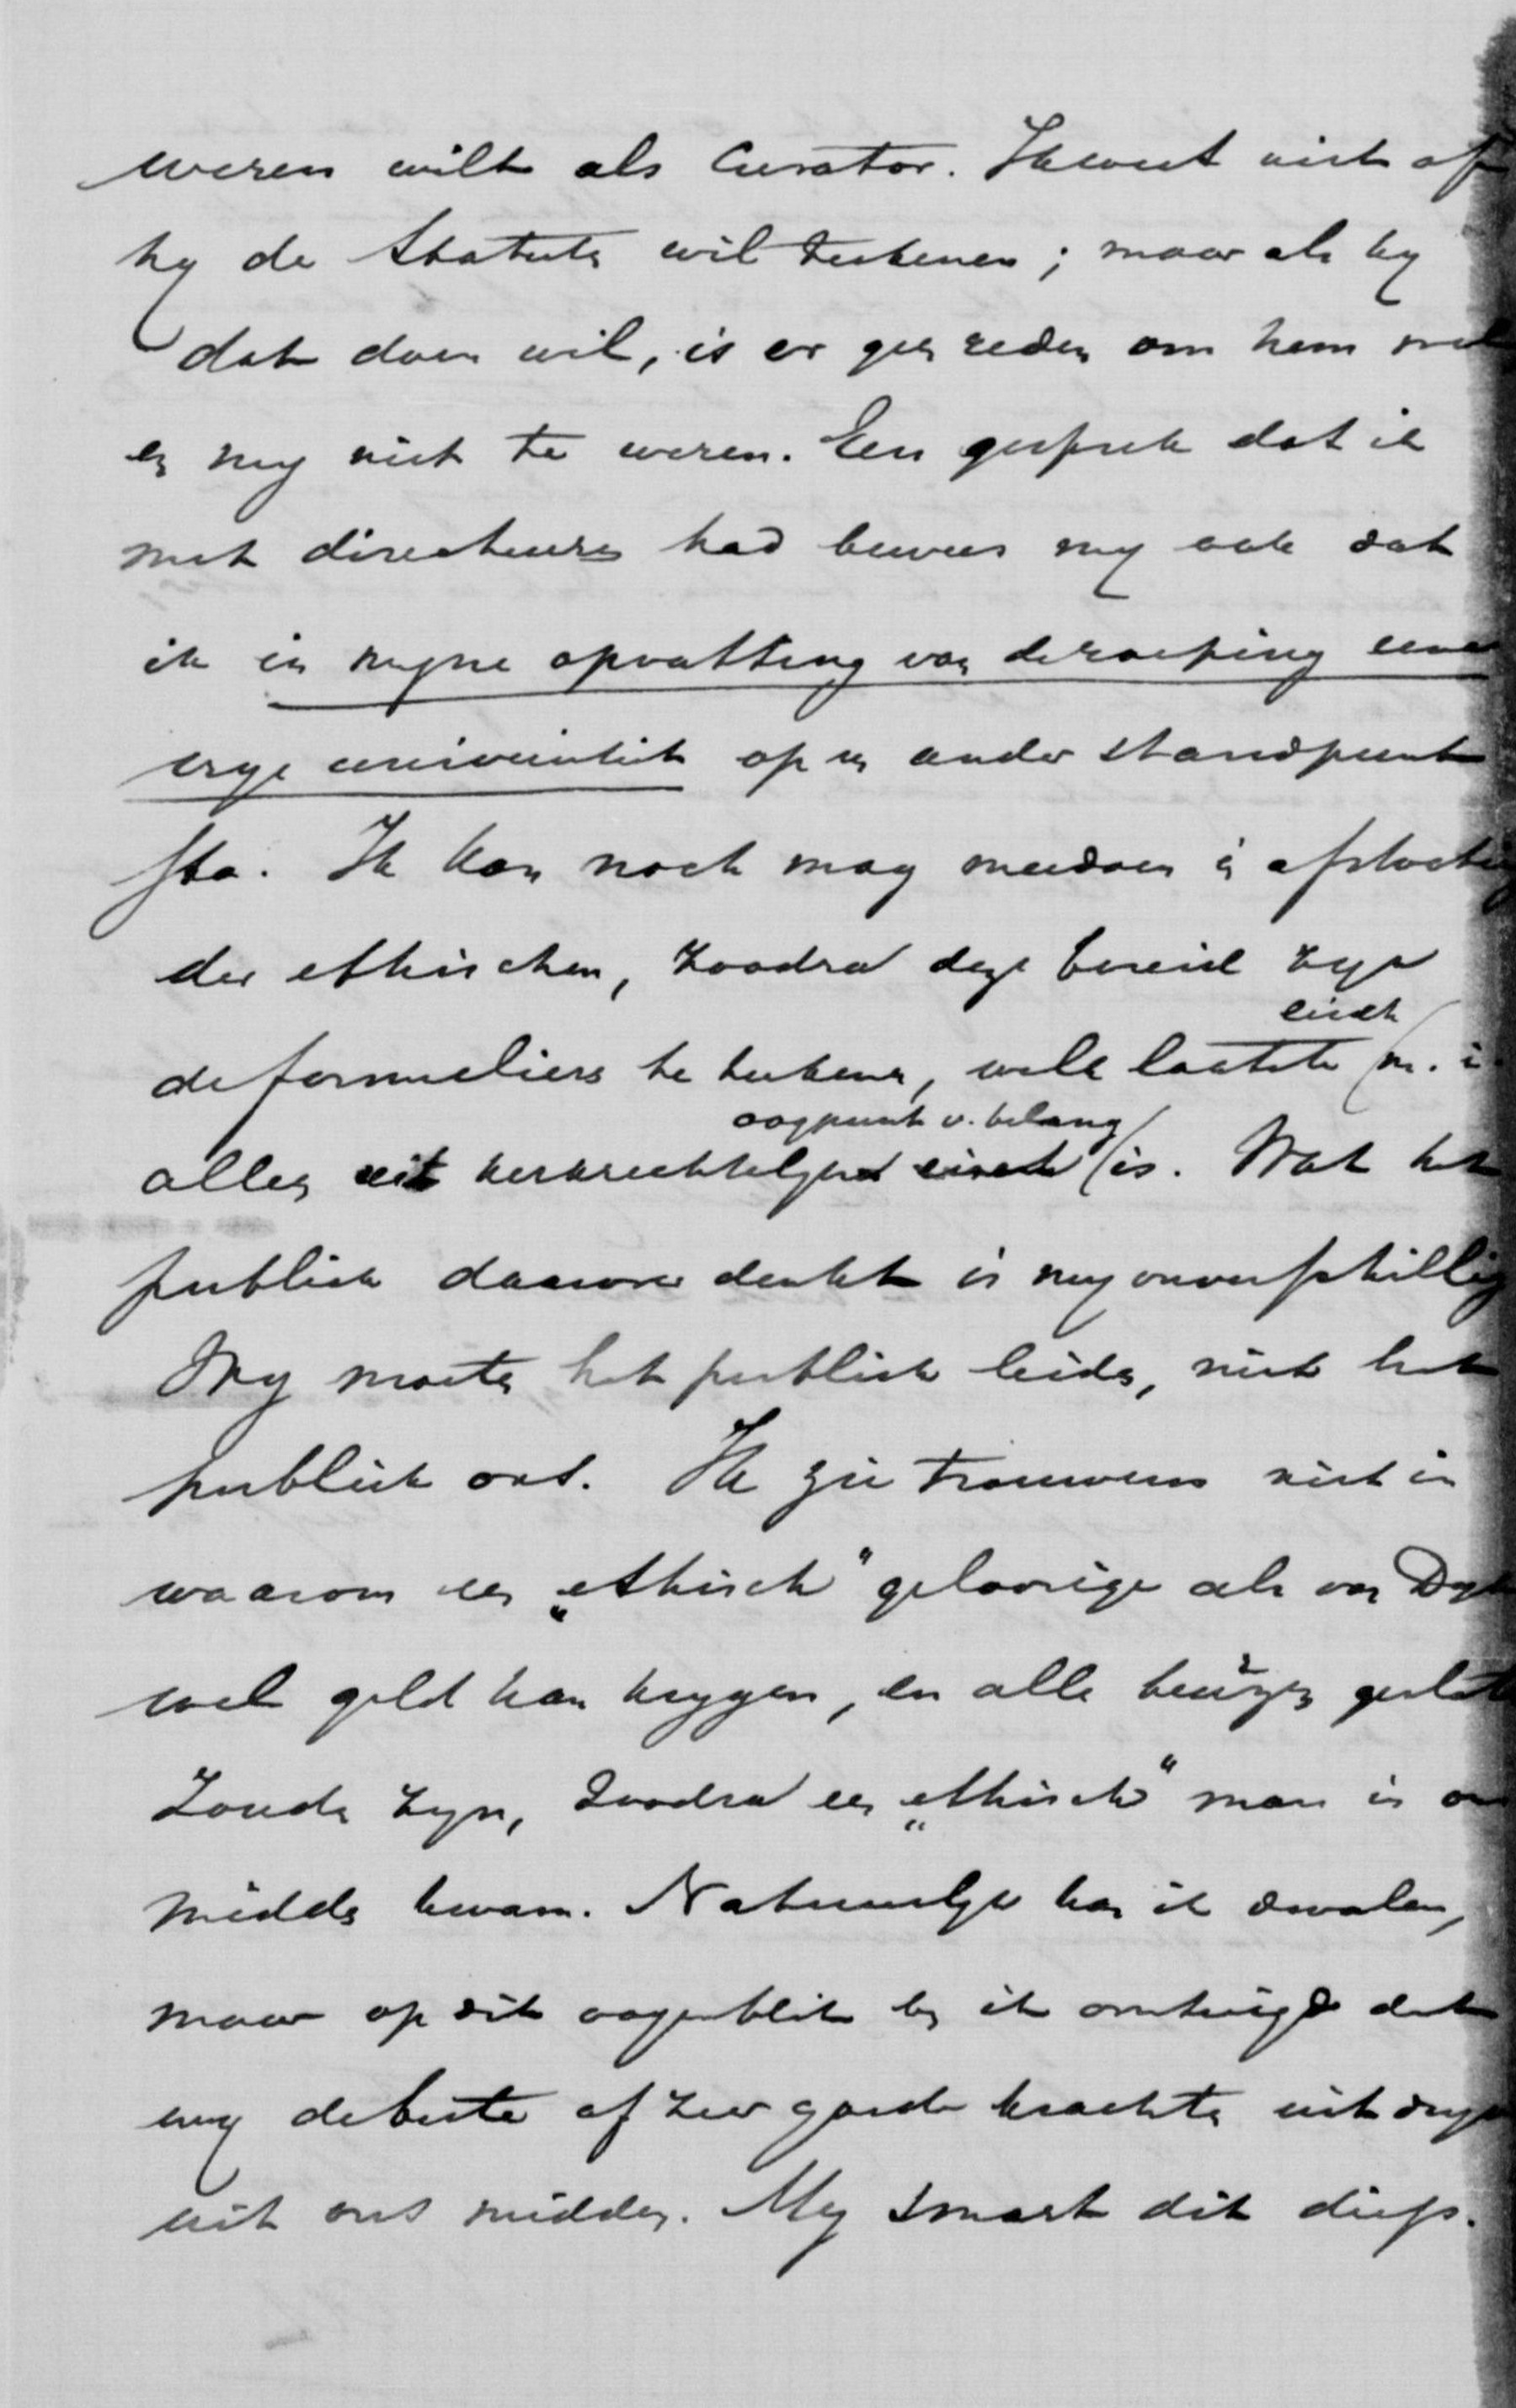 weren wilt als Curator. Ik weet niet of
hy de Statuten wil teekenen; maar als hy
dat doen wil, is er geen reden om hem wel
en my niet te weren. Een gesprek dat ik
met directeuren had bewees my ook dat
ik in myne opvatting van de roeping eener
vrye universiteit op een ander standpunt
sta. Ik kan noch mag meedoen in afstooting
der ethischen, zoodra deze bereid zyn
de formulieren te teekenen, welk laatste eisch m. i.
alles uit kerkrechtelyk oogpunt v. belang is. Wat het
publiek daarover denkt is my onverschillig
Wy moeten het publiek leiden, niet het
publiek ons. Ik zie trouwens niet in
waarom een „ethisch” geloovige als van Dyk
wel geld kan krygen, en alle beurzen gesloten
zouden zyn, zoodra een „ethisch” man in ons
midden kwam. Natuurlyk kan ik dwalen,
maar op dit oogenblik ben ik overtuigd dat
wy de beste of zeer goede krachten uitdryven
uit ons midden. My smart dit diep.